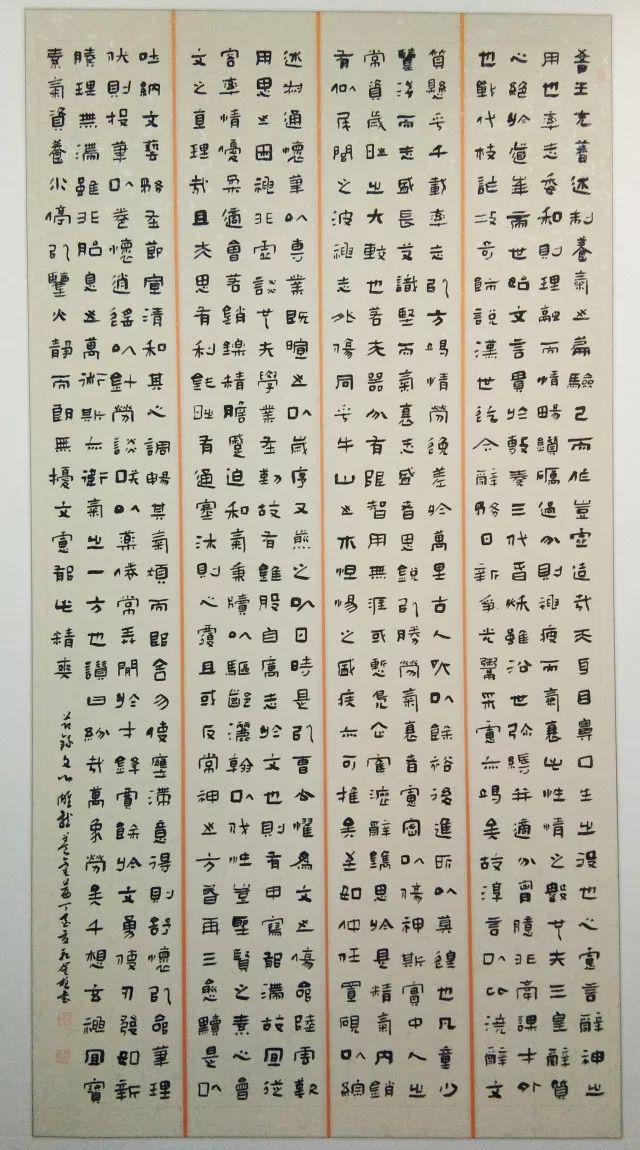 昔王充著述制養氣之篇驗己而作豈虛造哉夫耳目鼻口生之役也心慮言辭神之
用也率志委和則理融而情暢鑽礪過分則神疲而氣衰此性情之數也夫三皇辭質
心絕於道華帝世始文言貴於敷奏三代春秋雖沿世彌縟并適分胸臆非牽課才外
也戰代枝詐攻奇飾說漢世迄今辭務日新爭光鬻采慮亦竭矣故淳言以比澆辭文
質懸乎千載率志以方竭情勞逸差於萬里古人所以餘裕後進所以莫遑也凡童少
鑒淺而志盛長艾識堅而氣衰志盛者思銳以勝勞氣衰者慮密以傷神斯實中人之
常資歲時之大較也若夫器分有限智用無涯或慚鳧企鶴瀝辭鐫思於是精氣內銷
有似尾閭之波神志外傷同乎牛山之木怛惕之盛疾亦可推矣至如仲任置硯以綜
述叔通懷筆以專業既暄之以歲序又煎之以日時是以曹公懼為文之傷命陸雲歎
用思之困神非虛談也夫學業在勤故有錐股自厲志於文也則有申寫鬱滯故宜從
容率情優柔適會若銷鑠精膽蹙迫和氣秉牘以驅齡灑翰以伐性豈聖賢之素心會
文之直理哉且夫思有利鈍時有通塞沐則心覆且或反常神之方昏再三愈黷是以
吐納文藝務在節宣清和其心調暢其氣煩而即舍勿使壅滯意得則舒懷以命筆理
伏則投筆以卷懷逍遙以針勞談笑以藥倦常弄閑於才鋒賈餘於文勇使刃發如新
腠理無滯雖非胎息之萬術斯亦衛氣之一方也讚曰紛哉萬象勞矣千想玄神宜寶
素氣資養水停以鑒火靜而朗無擾文慮鬱此精爽
右錄文心雕龍養氣篇丁亥